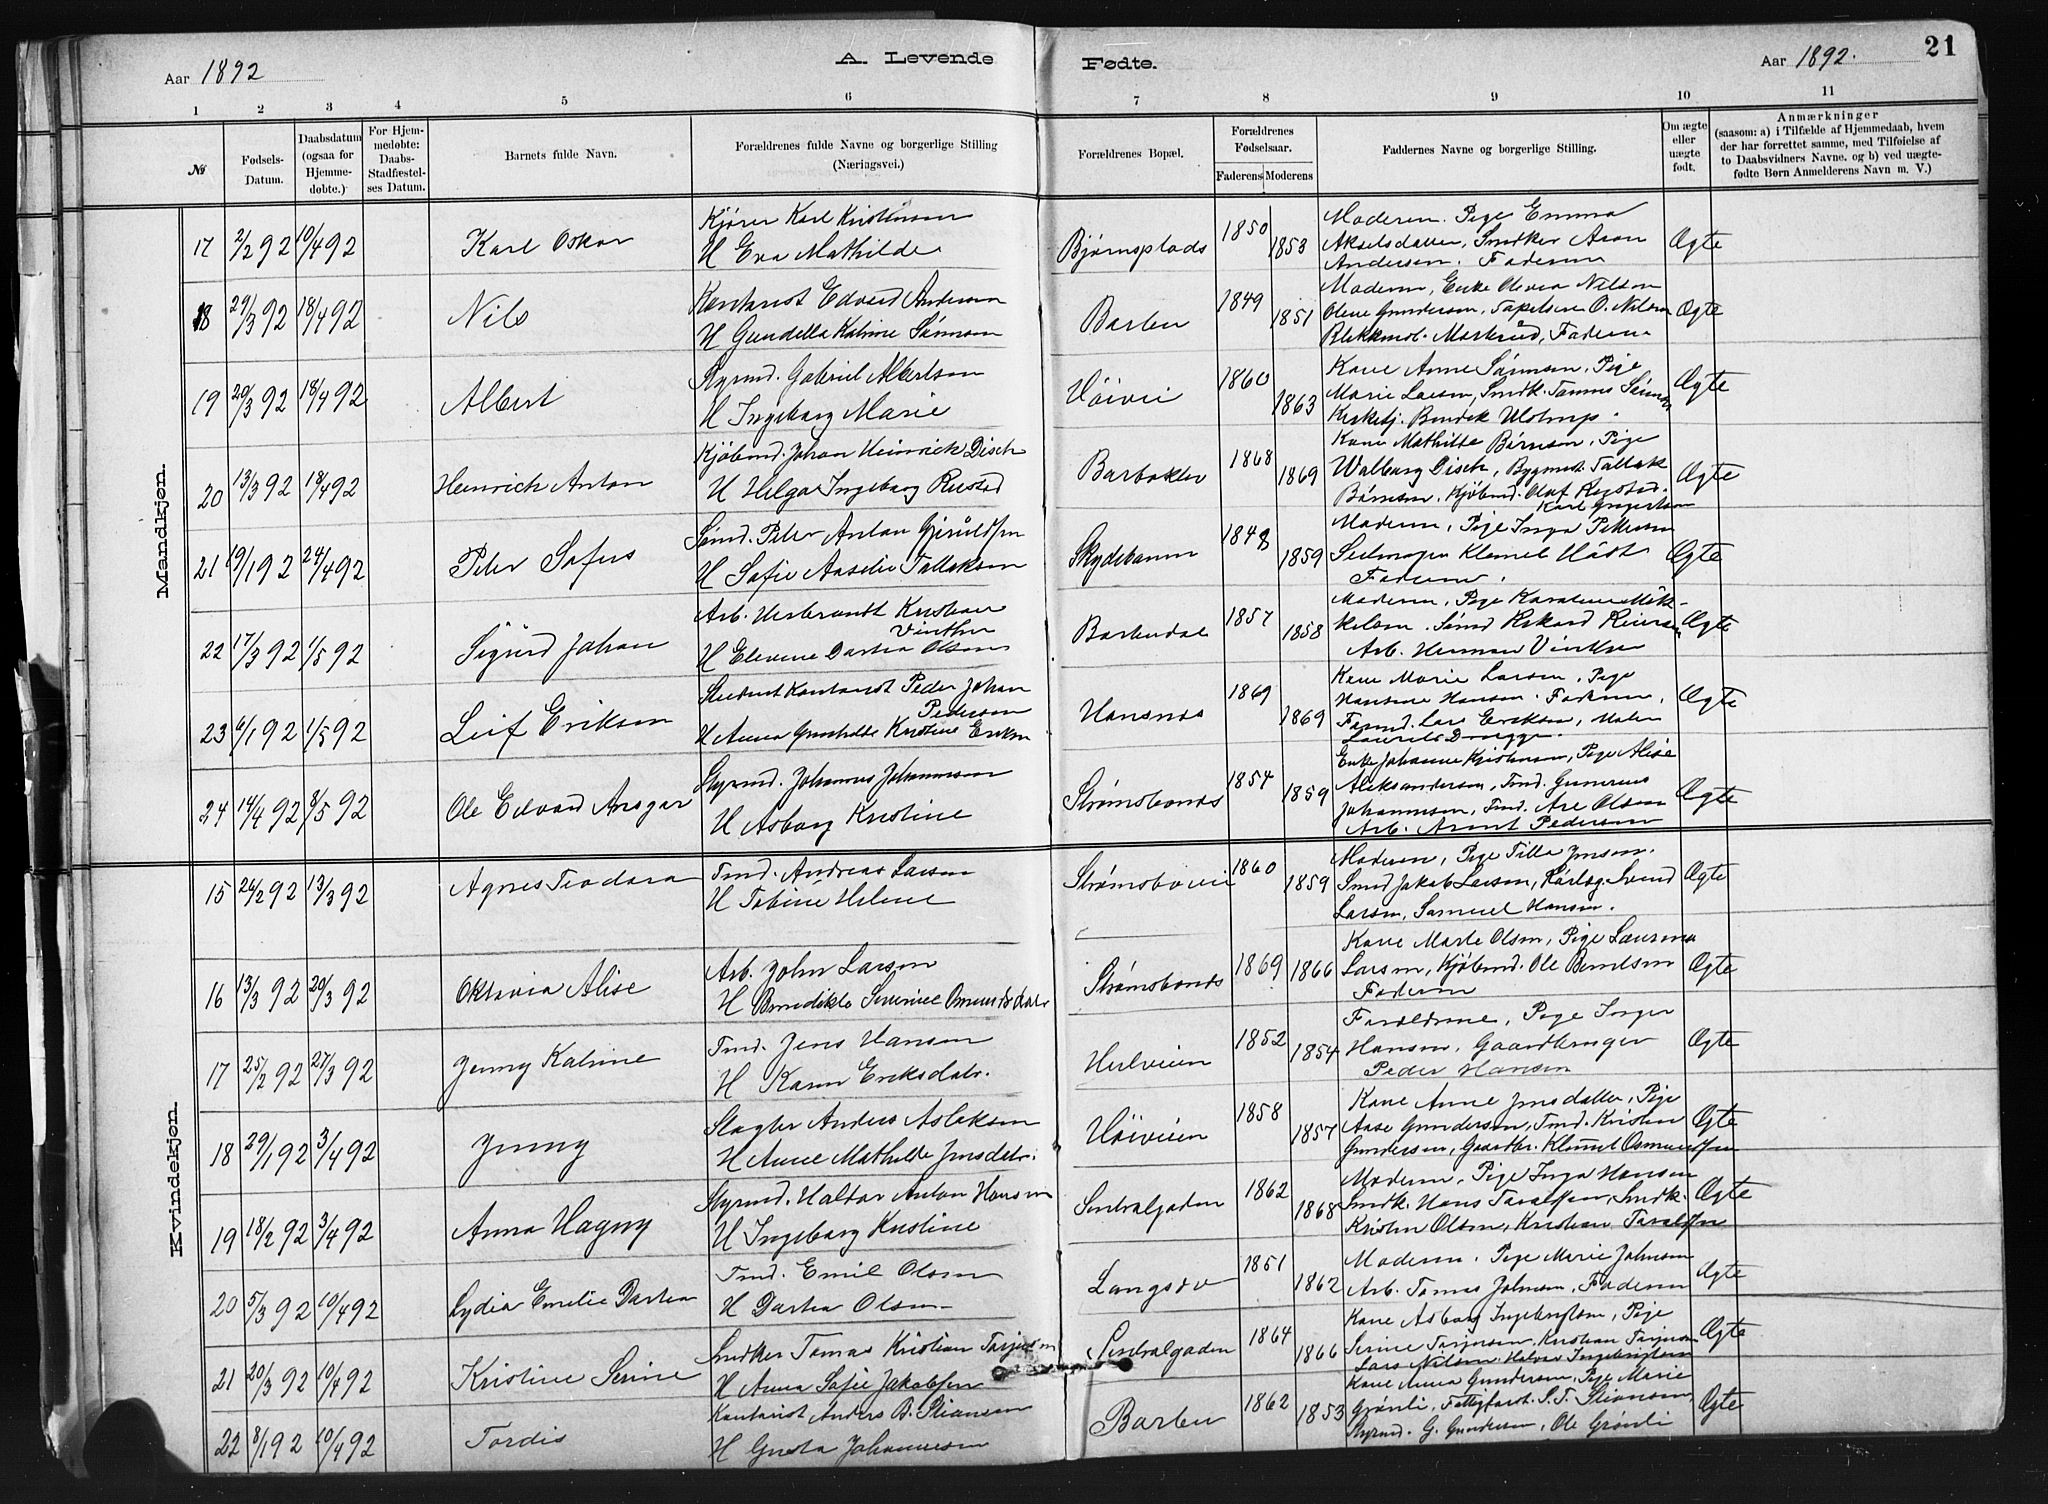 Aar 1892
A. Levende Fødte.
Aar 1892.
21
1 2 3 4 5 6 7 8 9 10 11
№
Fødsels-Datum.
Daabsdatum (ogsaa for Hjemme-døbte.)
For Hjem-medøbte: Daabs-Stadfæstel-ses Datum.
Barnets fulde Navn.
Forældrenes fulde Navne og borgerlige Stilling (Næringsvei.)
Forældrenes Bopæl.
Forældrenes Fødselsaar.
Faderens Moderens
Faddernes Navne og borgerlige Stilling.
Om ægte eller uægte født.
Anmærkninger
(saasom: a) i Tilfælde af Hjemmedaab, hvem
der har forrettet samme, med Tilføielse af
to Daabsvidners Navne. og b) ved uægte-
fødte Børn Anmelderens Navn m. V.)
Mandkjøn.
17 2/2 92 10/4 92 Karl Oskar
Kjører Karl Kristensen
H Eva Mathilde
Bjørnsplads 1850 1853
Moderen. Pige Emma
Akselsdatter, Snedker Aron
Andersen. Faderen
Ægte
18 29/3 92 18/4 92 Nils
Kontorist Edvard Andersen
H Gundella Katrine Sørensen
Barbu 1849 1851
Moderen, Enke Olivia Nilsen
Oline Gundersen, O. Nilsen
Faderen
Ægte
19 20/3 92 18/4 92 Albert
Styrmd. Gabriel Albertsen
H Ingeborg Marie
Høivei 1860 1863
Kone Anne Sørensen, Pige
Marie Larsen, Snedk. Tomas
Kirketj. Bendik
Ægte
20 13/3 92 18/4 92 Heinrich Anton
Kjøbmd. Johan Heinrich Disch
H Helga Ingeborg Rustad
Barbokler 1868 1869
Kone Mathilde Børresen, Pige
Walborg Disch, Bygmest. Tallak
Børresen, Kjøbmd. Olaf Rustad.
Karl
Ægte
21 19/1 92 24/4 92 Peter Sofus
Sømd. Peter Anton Gjeruldsen
H Sofie Aaselie Tallaksen
Skydebanen 1848 1859
Moderen, Pige Inga Pettersen
Seilmager Klemet Høst
Faderen.
Ægte
22 17/3 92 1/5 92 Sigurd Johan
Arb. Herbrandt Kristian
Vinther
H Elevine Dartea Olsen
Barbudal 1857 1858
Moderen, Pige Karoline Mik-
kelsen. Sømd Rikard Reiersen
Arb. Herman Vinther
Ægte
23 6/1 92 1/5 92 Leif Eriksen
Student Kontorist Peder Johan
Pedersen
H Anna Gunhilde Kristine Eriksen
Hansnes 1869 1869
Kone Marie Larsen, Pige
Hansine Hansen. Faderen,
Tømd. Lars Eriksen, Maler
Laurits Dragge.
Ægte
24 14/4 92 8/5 92 Ole Edvard Ansgar
Styrmd. Johannes Johannessen
H Asborg Kristine
Strømsbonds 1854 1859
Enke Johanne Kristensen, Pige Alise
Aleksandersen, Tmd. Gunerius
Johannessen, Tmd. Are Olsen
Arb. Arnt Pedersen
Ægte
Kvindekjøn.
15 24/2 92 13/3 92 Agnes Teodora
Tmd. Andreas Larsen
H Tobine Helene
Strømsbovei 1860 1859
Moderen, Pige Tilla Jensen.
Smed Jakob Larsen, Svend
Larsen, Samuel Hansen.
Ægte
16 13/3 92 20/3 92 Oktavia Alise
Arb. John Larsen
H Benedikte Severine Omundsdatr.
Strømsbonds 1869 1866
Kone Marte Olsen, Pige Laurense
Larsen, Kjøbmd. Ole Berntsen
Faderen
Ægte
17 25/2 92 27/3 92 Jenny Katrine
Tmd. Jens Hansen
H Karen Eriksdatr.
Hulveien 1852 1854
Forældrene, Pige Inger
Hansen, Gaardbruger
Peder Hansen
Ægte
18 29/1 92 3/4 92 Jenny
Slagter Anders Aslaksen
H Anne Mathilde Jensdatr.
Høiveien 1858 1857
Kone Anne Jensdatter, Pige
Aase Gundersen, Tmd. Kristen
Gundersen, Gaardbr. Klemet Osmundsen
Ægte
19 18/2 92 3/4 92 Anna Hagny
Styrmd. Haldor Anton Hansen
H Ingeborg Kristine
Sentralgaden 1862 1868
Moderen, Pige Inga Hansen
Smedk. Hans Taraldsen, Smedk.
Kristen Olsen, Kristian Taraldsen
Ægte
20 5/3 92 10/4 92 Lydia Emelie Dartea
Tmd. Emil Olsen
H Dartea Olsen
Langsæv 1851 1862
Moderen. Pige Marie Johnsen
Arb. Tomas Johnsen, Faderen
Ægte
21 20/3 92 10/4 92 Kristine Serine
Snedker Tomas Kristian Terjesen
H Anna Sofie Jakobsen
Sentralgaden 1864 1866
Kone Asborg Ingebrigtsen, Pige
Serine Terjesen, Kristian Terjesen
Lars Nilsen, Halvor Ingebrigtsen
Ægte
22 8/1 92 10/4 92 Tordis
Kontorist Anders B. Stiansen
H Gusta Johannessen
Barbu 1862 1853
Kone Anna Gundersen, Pige Marie
Grønli, Fattigforst. S. T. Stiansen,
Styrmd. G. Gundersen, Ole Grønli
Ægte